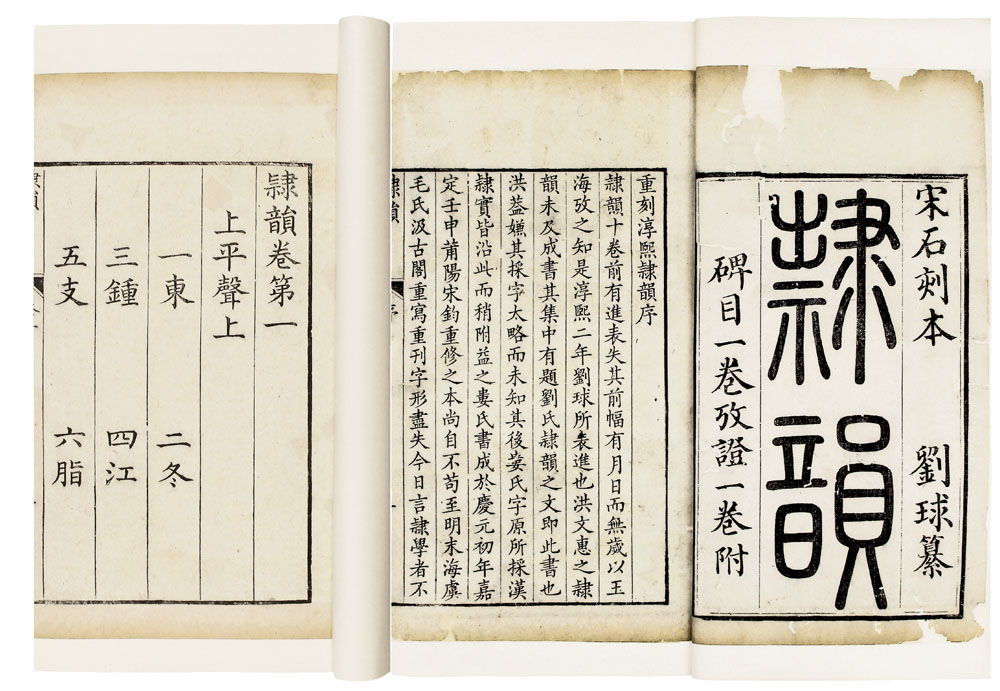 宋石刻本　劉球纂
隸韻
碑目一卷攷證一卷附
重刻淳熙隸韻序
隸韻十卷前有進表失其前幅有月日而無歲以王
海攷之知是淳熙二年劉球所表進也洪文惠之隸
韻未及成書其集中有題劉氏隸韻之文即此書也
洪葢嫌其採字太略而未知其後婁氏字原所採漢
隸實皆沿此而稍附益之婁氏書成於慶元初年嘉
定壬申莆陽宋鈞重修之本尚自不苟至明末海虞
毛氏汲古閣重寫重刊字形盡失今日言隸學者不
隸韻　序　一
隸韻卷第一
上平聲上
一東　二冬
三鍾　四江
五支　六脂